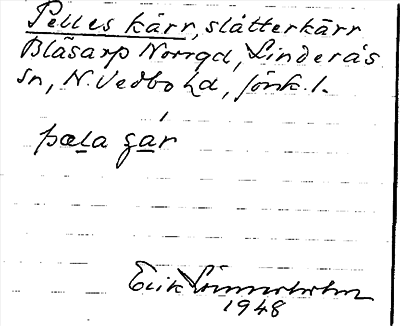 Pelles kärr, slåtterkärr
Blåsarp Norrgd, Linderås
sn, N. Vedbo hd, Jönk. l.
pæla gar
Erik Lönnerholm
1948